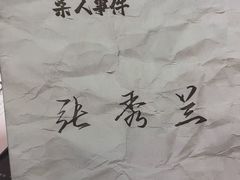 杀人事件
张秀兰